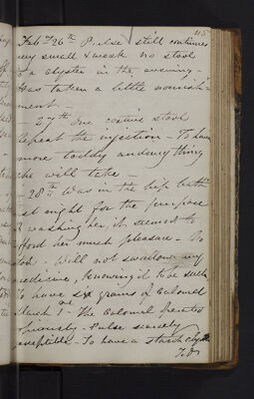 115
Feb 26th Pulse still continues
very small & weak no stool
a clyster in the evening -
Has taken a little nourish-
ment -
27th One costive stool
Repeat the injection - To have
more toddy and any thing
she will take -
28th Was in the hip bath
last night for the purpose
of washing her, it seemed to
afford her much pleasure - No
stool - Will not swallow any
medicine, knowing it to be such
To have six grams of Calomel
The Calomel
Pulse scarcely
perceptible - To have a starch clyster